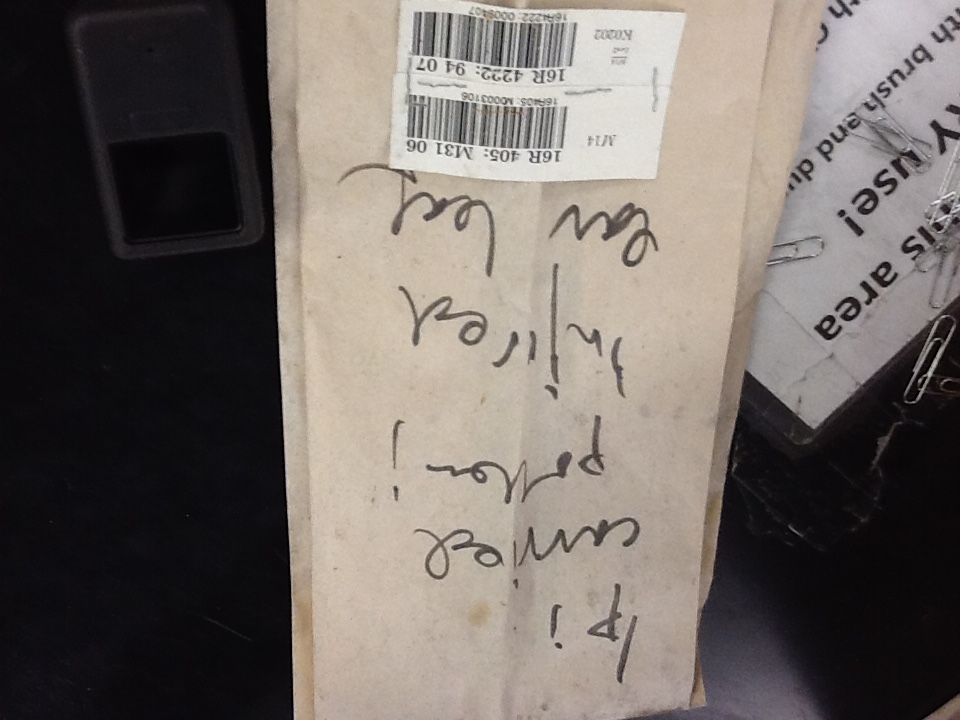 1p j
carried
pollen j
Injired
ear leaf
M14
16R 405: M31 06
16R405: M0003106
16R 4222: 94 07
K0202
16R4222: 0009407
this area
use!
brush and